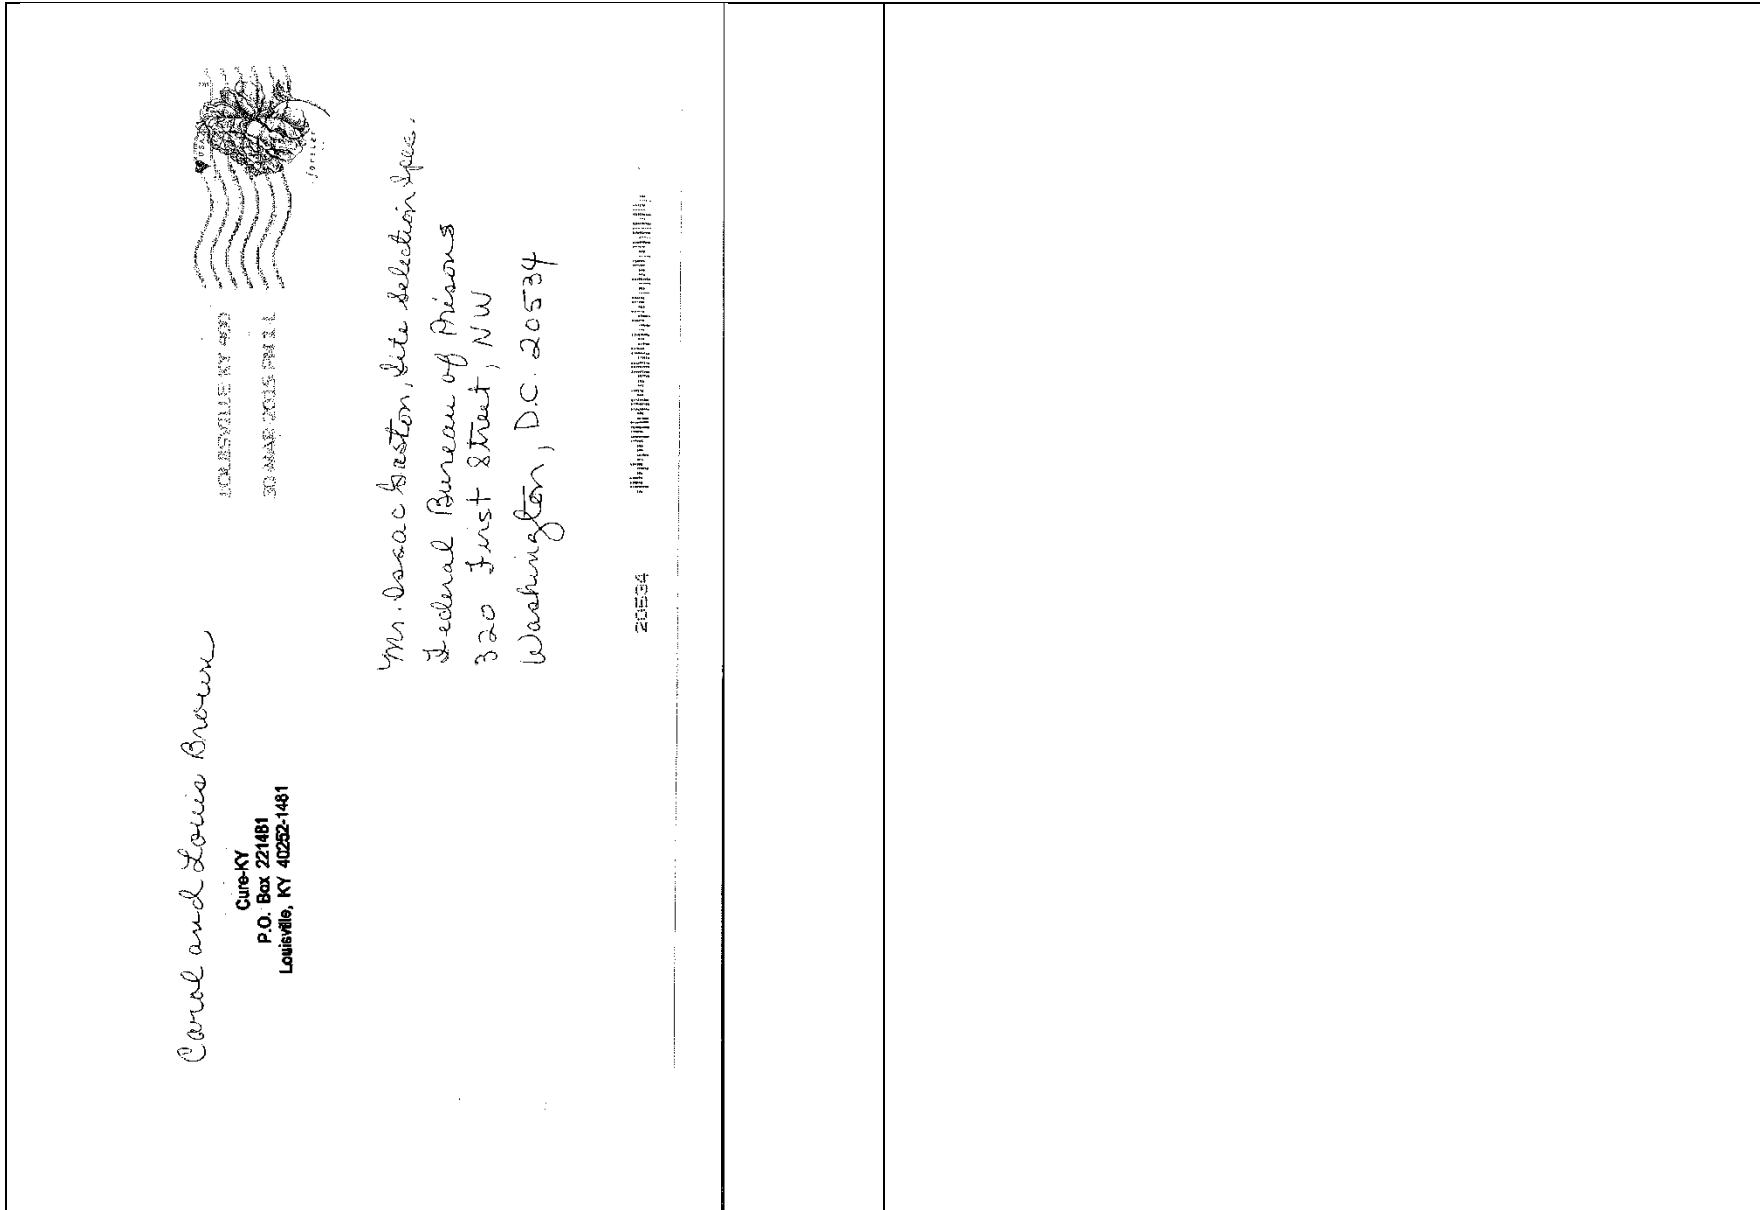 Carol and Louis Brown
Cure-KY
P.O. Box 221481
Louisville, KY 40252-1481
LOUISVILLE KY 400
30 MAR 2015 PM 1 L
USA
Forever
Mr. Isaac Gaston, Site Selection Spec.
Federal Bureau of Prisons
320 First Street, NW
Washington, D.C. 20534
20534